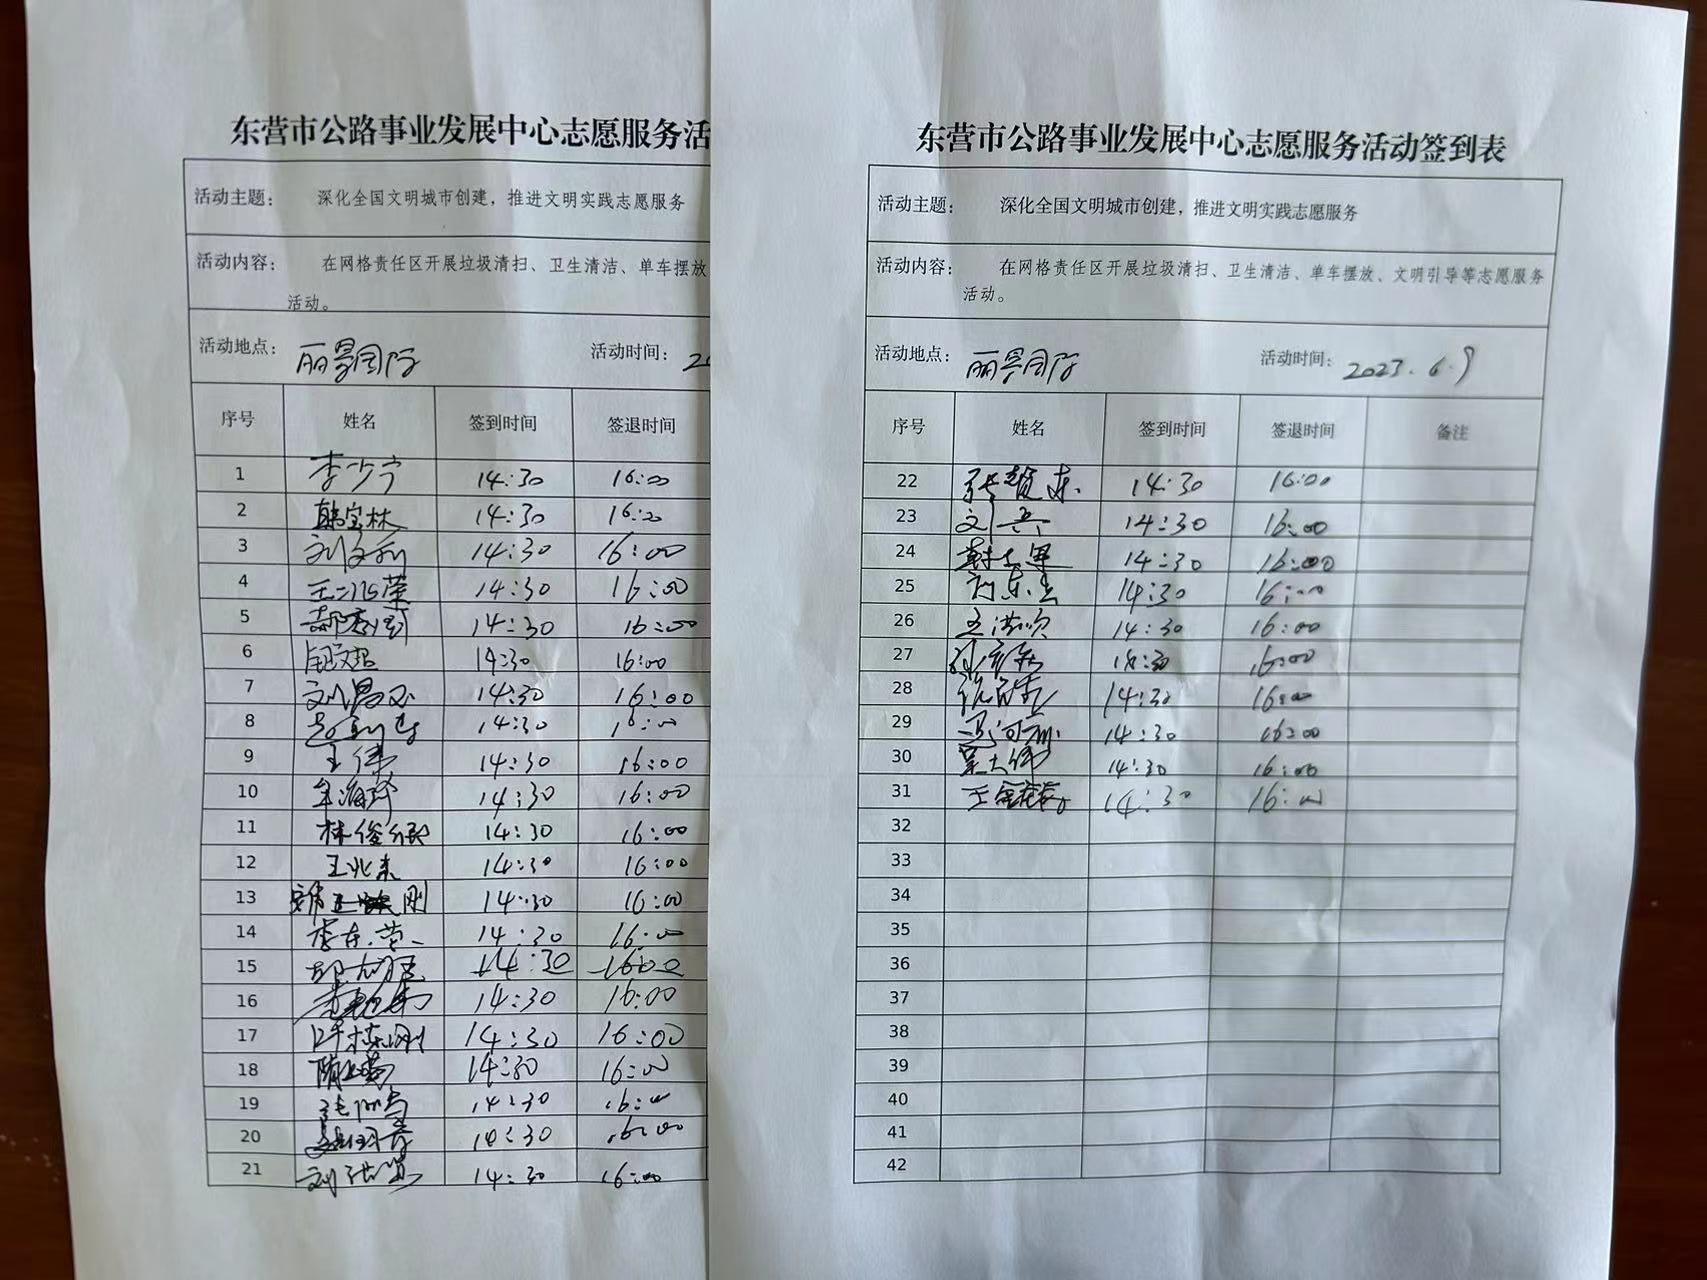 东营市公路事业发展中心志愿服务活
活动主题： 深化全国文明城市创建，推进文明实践志愿服务
活动内容： 在网格责任区开展垃圾清扫、卫生清洁、单车摆放
活动。
活动地点： 丽景国际 活动时间： 20
序号 姓名 签到时间 签退时间
1 李少宁 14:30 16:00
2 韩宝林 14:30 16:00
3 14:30 16:00
4 14:30 16:00
5 14:30 16:00
6 14:30 16:00
7 14:30 16:00
8 14:30 16:00
9 王伟 14:30 16:00
10 14:30 16:00
11 林俊岷 14:30 16:00
12 王兆东 14:30 16:00
13 14:30 16:00
14 李东营 14:30 16:00
15 14:30 16:00
16 14:30 16:00
17 许栋刚 14:30 16:00
18 14:30 16:00
19 14:30 16:00
20 14:30 16:00
21 14:30 16:00
东营市公路事业发展中心志愿服务活动签到表
活动主题： 深化全国文明城市创建，推进文明实践志愿服务
活动内容： 在网格责任区开展垃圾清扫、卫生清洁、单车摆放、文明引导等志愿服务
活动。
活动地点： 丽景国际 活动时间： 2023.6.9
序号 姓名 签到时间 签退时间 备注
22 张赞东 14:30 16:00
23 刘兵 14:30 16:00
24 14:30 16:00
25 14:30 16:00
26 14:30 16:00
27 14:30 16:00
28 14:30 16:00
29 14:30 16:00
30 吴大伟 14:30 16:00
31 14:30 16:00
32
33
34
35
36
37
38
39
40
41
42